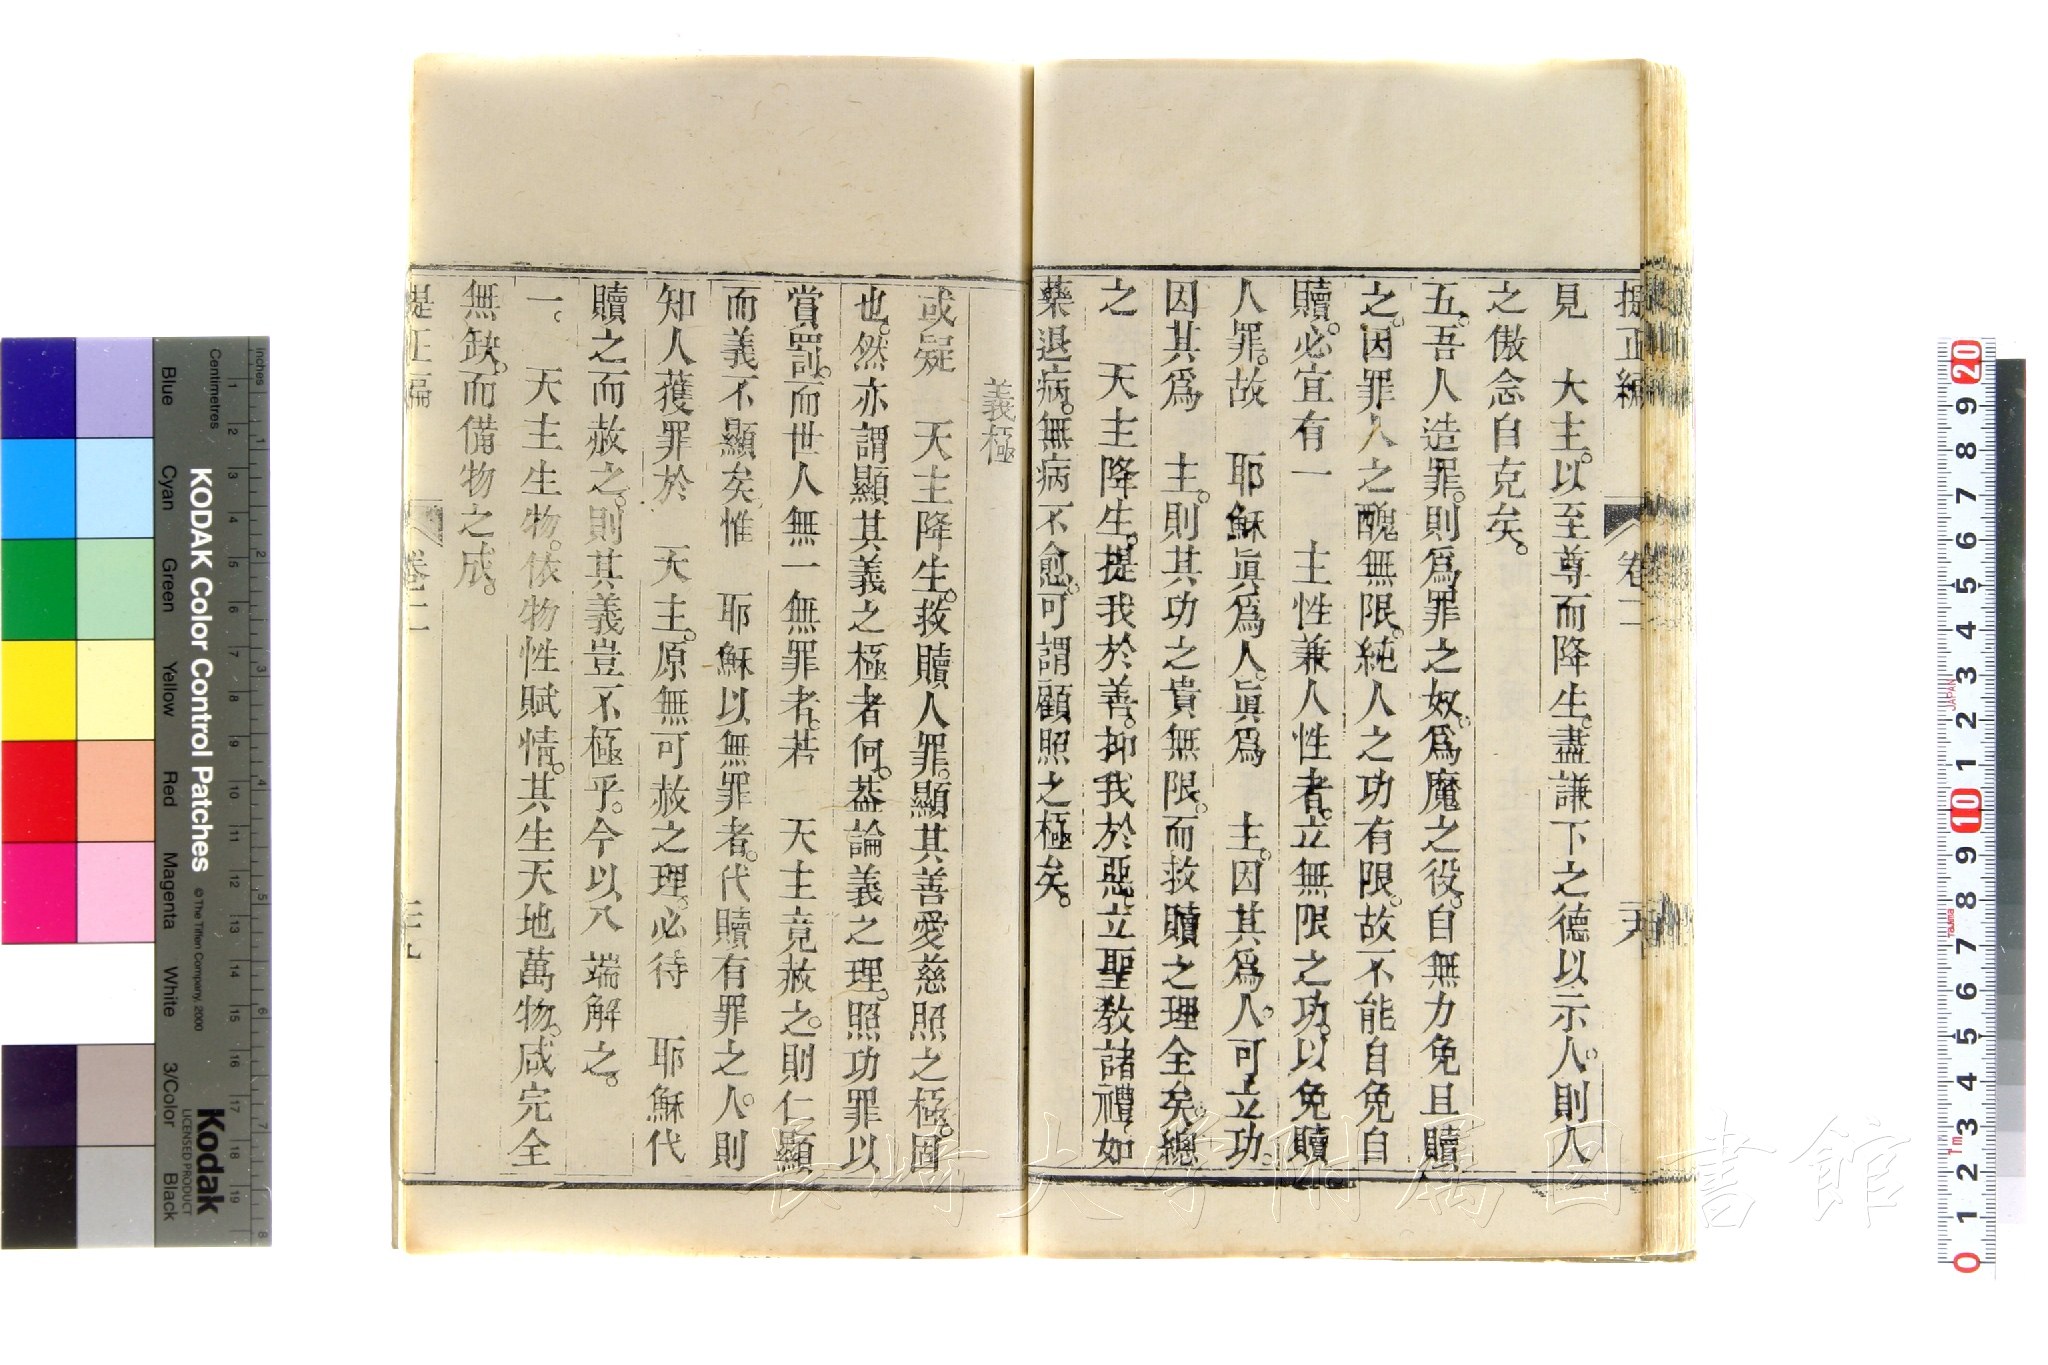 提正編 卷二
見 大主。以至尊而降生。盡謙下之德以示人。則人
之傲念自克矣。
五。吾人造罪。則爲罪之奴。爲魔之役。自無力免且贖
之。因罪人之醜無限。純人之功有限。故不能自免自
贖。必宜有一 主性兼人性者。立無限之功。以免贖
人罪。故 耶穌眞爲人。眞爲 主。因其爲人。可立功。
因其爲 主。則其功之貴無限。而救贖之理全矣。總
之 天主降生。提我於善。抑我於惡。立聖敎諸禮。如
藥退病。無病不愈。可謂顧照之極矣。
義極
或疑 天主降生。救贖人罪。顯其善愛慈照之極。固
也。然亦謂顯其義之極者何。葢論義之理。照功罪以
賞罰。而世人無一無罪者。若 天主竟赦之。則仁顯
而義不顯矣。惟 耶穌以無罪者。代贖有罪之人。則
知人獲罪於 天主。原無可赦之理。必待 耶穌代
贖之而赦之。則其義豈不極乎。今以八端解之。
一。 天主生物。依物性賦情。其生天地萬物。咸完全
無缺。而備物之成。
提正編 卷二
KODAK Color Control Patches
© The Tiffen Company, 2000
Kodak
LICENSED PRODUCT
inches 1 2 3 4 5 6 7 8
Centimetres 1 2 3 4 5 6 7 8 9 10 11 12 13 14 15 16 17 18 19
Blue Cyan Green Yellow Red Magenta White 3/Color Black
20 9 8 7 6 5 4 3 2 1 10 9 8 7 6 5 4 3 2 1 0
JAPAN
長崎大学附属図書館